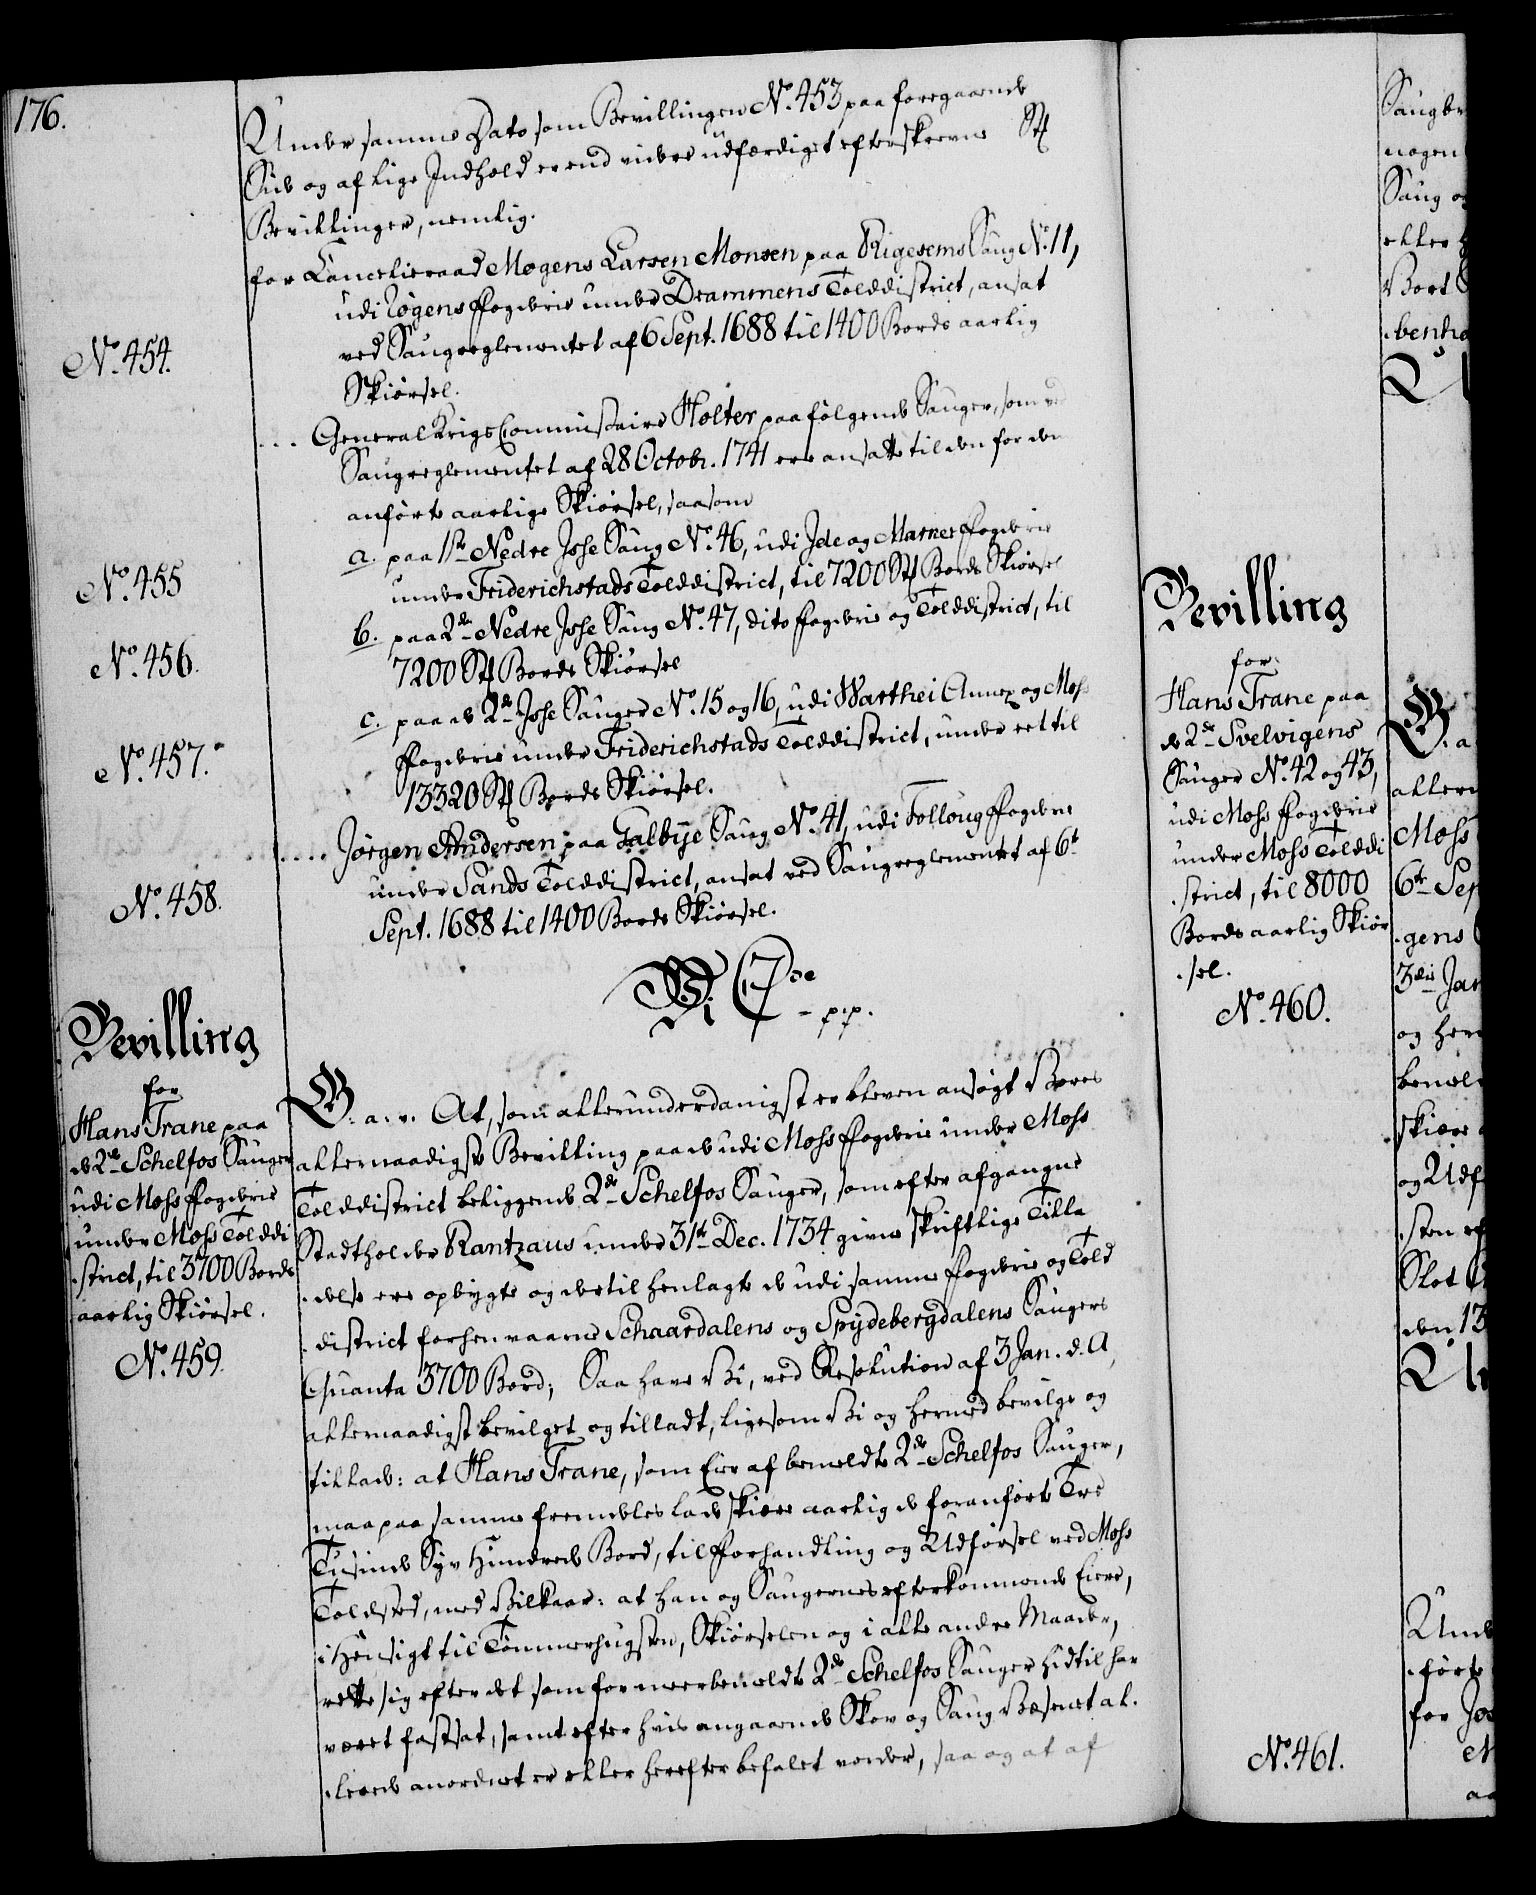 176.
Under samme Dato som Bevillingen No. 453 paa foregaaende
Side og af lige Indhold er end videre udfærdiget efterskrevne Stk
Bevillinger, nemlig.
for Cancelieraad Mogens Larsen Monsen paa Rigesems Saug No. 11,
udi Røgens Fogderie under Drammens Tolddistrict, ansat
ved Saugreglementet af 6 Sept. 1688 til 1400 Bords aarlig
Skiørsel.
No. 454.
... General Krigs Commissaire Holter paa følgende Sauger, som ved
Saugreglementet af 28 Octobr. 1741 ere ansatte til den for dem
anførte aarlige Skiørsel, saasom
a. paa 1ste Nedre Josse Saug No. 46, udi Ide og Marker Fogderie
under Friderichstads Tolddistrict, til 7200 Stk Bords Skiørsel
No. 455
b. paa 2de Nedre Josse Saug No. 47, dito Fogderie og Tolddistrict, til
7200 Stk Bords Skiørsel
No. 456.
c. paa de 2de Josse Sauger No. 15 og 16, udi Warthei Annex og Moss
Fogderie under Friderichstads Tolddistrict, under eet til
13320 Stk Bords Skiørsel.
No. 457.
.... Jørgen Andersen paa Galbye Saug No. 41, udi Folloug Fogderie
under Sands Tolddistrict, ansat ved Saugreglementet af 6te
Sept. 1688 til 1400 Bords Skiørsel.
No. 458.
Vi C 7de
- p.p.
Bevilling
for
Hans Trane paa
de 2de Schelfos Sauger
udi Moss Fogderie
under Moss Tolddi
strict, til 3700 Bords
aarlig Skiørsel.
No. 459.
G. a. v. At, som allerunderdanigst er bleven ansøgt Vores
allernaadigste Bevilling paa de udi Moss Fogderie under Moss
Tolddistrict beliggende 2de Schelfos Sauger, som efter afgangne
Stadtholder Rantzaus under 31te Dec. 1734 givne skriftlige Tilla
delse ere opbygte og dertil henlagte de udi samme Fogderie og Told
district forhen værne Schaardalens og Spydebergdalens Saugers
Quanta 3700 Bord; Saa have Vi, ved Resolution af 3 Jan. d. A,
allernaadigst bevilget og tilladt, ligesom Vi og hermed bevilge og
tillade: at Hans Trane, som Eier af bemeldte 2de Schelfos Sauger,
maa paa samme fremdeles lade skiære aarlig de foranførte Tre
Tusinde Syv Hundrede Bord, til Forhandling og Udførsel ved Moss
Toldsted, med Vilkaar: at han og Saugernes efterkommende Eiere,
i Hensigt til Tømmerhugsten, Skiørselen og i alle andre Maader,
rette sig efter det som for meerbemeldte 2de Schelfos Sauger hidtil har
været fastsat, samt efter hvis angaaende Skov og Saug Væsenet al.
lerede anordnet er eller herefter befalet vorder, saa og at af
Bevilling
for
Hans Trane paa
de 2de Svelvigens
Sauger No. 42 og 43,
udi Moss Fogderie
under Moss Tolddi
strict, til 8000
Bords aarlig Skiør
sel.
No. 460.
No. 461.
Saugbr
nogen
Saug o
eller
Bort
benha
G. a
allern
Moss
6te Sep
gens
3die Jan
og her
bemel
skiære
og Udf
sten ef
Slot
den 13
Und
førte
for Jo